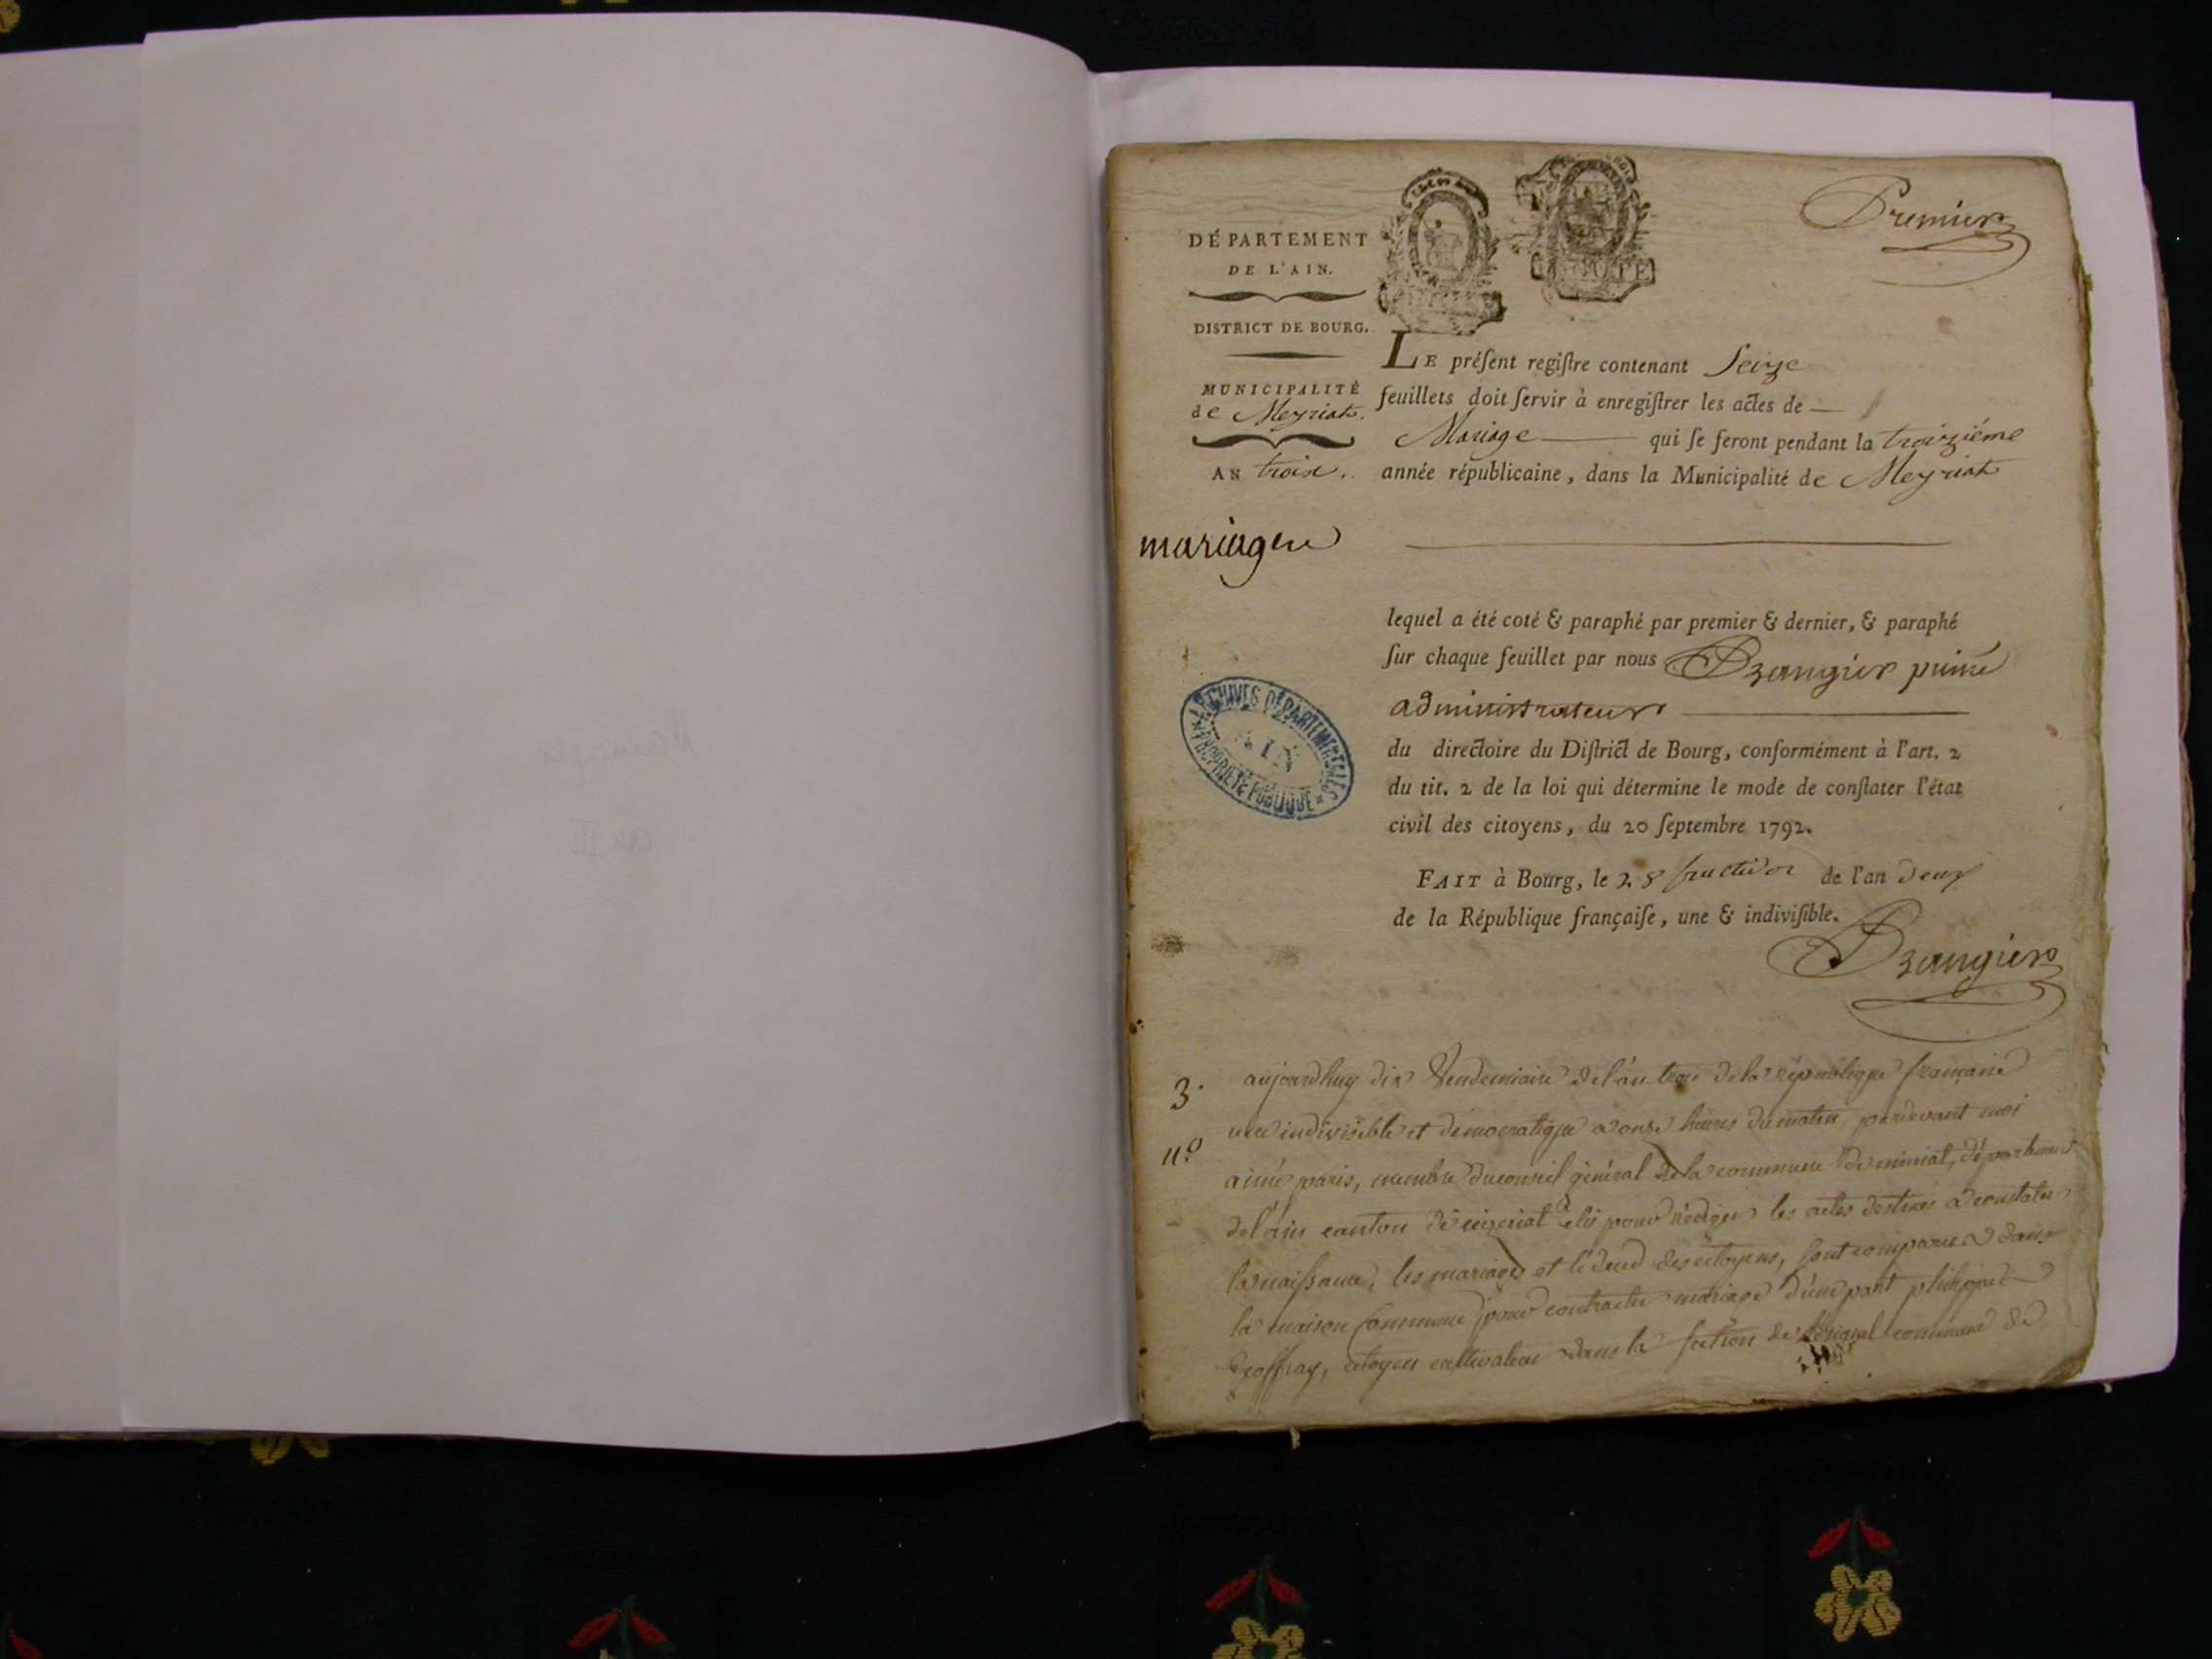 Premier
DÉPARTEMENT
DE L'AIN.
DISTRICT DE BOURG.
MUNICIPALITÉ
de Meyriat.
AN trois.
LE préſent regiſtre contenant Seize
feuillets doit ſervir à enregiſtrer les actes de
Mariage qui ſe feront pendant la troiziéme
année républicaine, dans la Municipalité de Meyriat
mariages
lequel a été coté & paraphé par premier & dernier, & paraphé
ſur chaque feuillet par nous Brangier puiné
administrateur
du directoire du Diſtrict de Bourg, conformément à l'art. 2
du tit. 2 de la loi qui détermine le mode de conſtater l'état
civil des citoyens, du 20 ſeptembre 1792.
FAIT à Bourg, le 28 fructidor de l'an deux
de la République françaiſe, une & indiviſible.
Brangier
ARCHIVES DÉPARTEMENTALES
AIN
PROPRIÉTÉ PUBLIQUE
3.
aujourdhuy dix Vendemiaire de l'an trois de la république française
une indivisible et démocratique a onze heures du matin, pardevant moi
nº
aimé paris, membre du conseil général de la commune de miriat, département
de l'ain canton de ceizeriat élu pour rédiger les actes destinés a constater
la naissance, les mariages et le deces des citoyens, sont comparus dans
la maison Commune pour contracter mariage d'une part philippe
Geoffray, citoyen cultivateur dans la section de commune de